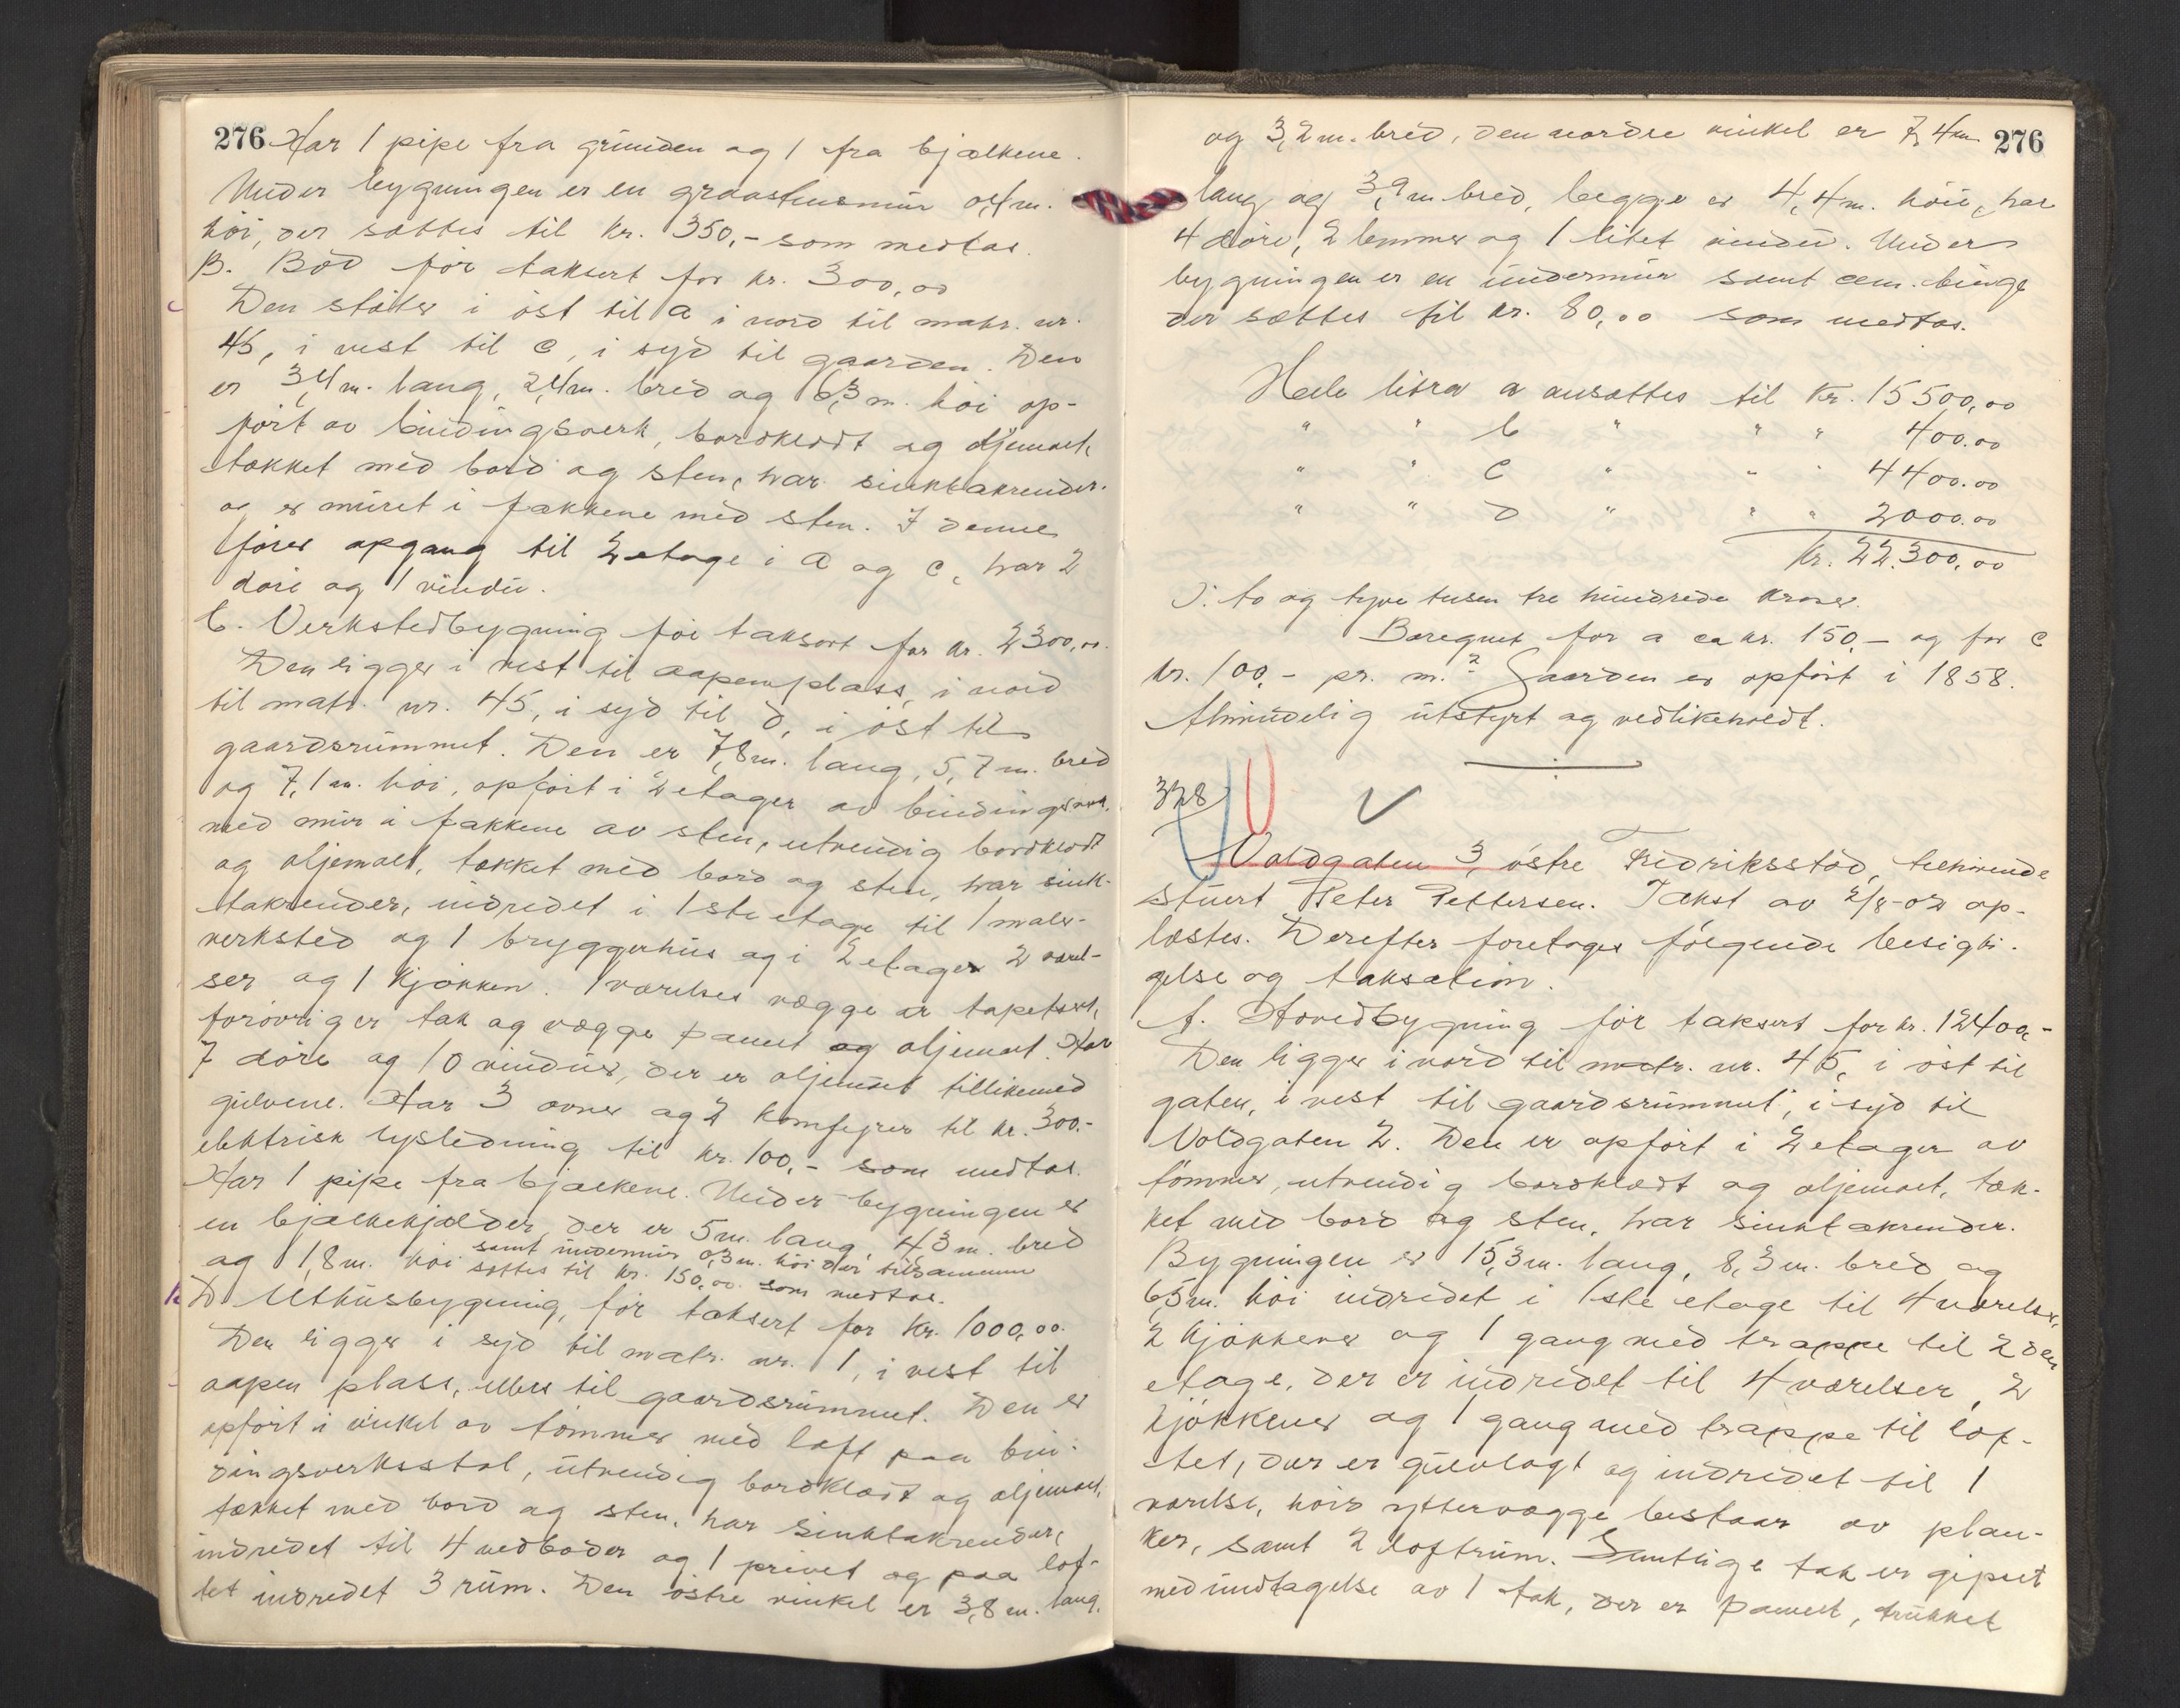 276 Har 1 pipe fra grunden og 1 fra bjælkene.
Under bygningen er en graastensmur 0,4 m.
høi, der sættes til kr. 350,- som medtas.
B. Bod før taksert for kr. 300,00
Den støter i øst til a i nord til matr. nr.
45, i vest til c, i syd til gaarden. Den
er 3,4 m. lang, 2,4 m. bred og 6,3 m. høi op-
ført av bindingsverk, bordklædt og oljemalt,
tækket med bord og sten, har sinktakrender.
og er muret i fakkene med sten. I denne
fører opgang til 2 etage i a og c, har 2
døre og 1 vindu.
C. Verkstedbygning før taksert for kr. 2300,00.
Den ligger i vest til aapen plass, i nord
til matr. nr. 45, i syd til d, i øst til
gaardsrummet. Den er 7,8 m. lang, 5,7 m. bred
og 7,1 m. høi, opført i 2 etager av bindingsverk,
med mur i fakkene av sten, utvendig bordklædt
og oljemalt, tækket med bord og sten, har sink-
takrender, indredet i 1ste etage til 1 maler-
verksted og 1 bryggerhus og i 2 etager 2 værel-
ser og 1 kjøkken. 1 værelses vægge er tapetsert,
forøvrig er tak og vægge panelt og oljemalt. Har
7 døre og 10 vinduer, der er oljemalt tillikemed
gulvene. Har 3 ovner og 2 komfyrer til kr. 300.-
elektrisk lysledning til kr. 100,- som medtas.
Har 1 pipe fra bjælkene. Under bygningen er
en bjælkekjælder, der er 5 m. lang, 4,3 m. bred
og 1,8 m. høi samt undermur 0,3 m. høi der tilsammen
sættes til kr. 150,00. som medtas.
D Uthusbygning, før taksert for kr. 1000,00.
Den ligger i syd til matr. nr. 1, i vest til
aapen plass, ellers til gaardsrummet. Den er
opført i vinkel av tømmer med loft paa bin-
dingsverksstol, utvendig bordklædt og oljemalt,
tækket med bord og sten, har sinktakrender,
indredet til 4 vedboder og 1 privet og paa lof-
tet indredet 3 rum. Den østre vinkel er 3,8 m. lang.
og 3,2 m. bred, den nordre vinkel er 7,4 m. 276
lang og 3,9 m bred, begge er 4,4 m. høie, har
4 døre, 2 lemmer og 1 litet vindu. Under
bygningen er en undermur samt cem. binge
der sættes til kr. 80,00 som medtas.
Hele litra a ansættes til Kr. 15500,00
" " b " " " 400.00
" " c " " " 4400.00
" " d " " " 2000.00
Kr. 22.300,00
ɔ: to og tyve tusen tre hundrede kroner.
Beregnet for a ca kr. 150,- og for c
kr. 100,- pr. m.² Gaarden er opført i 1858.
Almindelig utstyrt og vedlikeholdt.
328
Voldgaten 3, østre Fredriksstad, tilhørende
stuert Peter Pettersen. Takst av 2/8-02 op-
læstes. Derefter foretoges følgende besigti-
gelse og taksation.
A. Hovedbygning før taksert for kr. 12400,-
Den ligger i nord til matr. nr. 45, i øst til
gaten, i vest til gaardsrummet, i syd til
Voldgaten 2. Den er opført i 2 etager av
tømmer, utvendig bordklædt og oljemalt, tæk-
ket med bord og sten, har sinktakrender.
Bygningen er 15,3 m. lang, 8,3 m. bred og
6,5 m. høi indredet i 1ste etage til 4 værelser,
2 kjøkkener og 1 gang med trappe til 2den
etage, der er indredet til 4 værelser, 2
kjøkkener og 1 gang med trappe til lof-
tet, der er gulvlagt og indredet til 1
værelse, hvis yttervægge bestaar av plan-
ker, samt 2 loftrum. Samtlige tak er gipset
med undtagelse av 1 tak, der er panelt, trukket